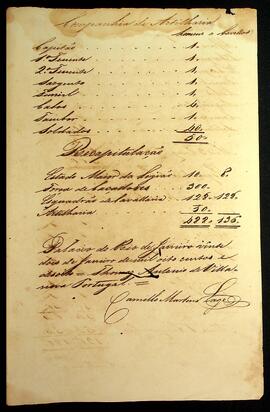 Companhia de Artilharia
Homens e Cavallos
Capitão 1.
1º Tenente 1.
2º Tenente 1.
Sargento 1.
Furriel 1.
Cabos 4.
Tambor 1.
Soldados 40.
50.
Recapitulação
Estado Maior da 10. 8.
de Cacadores 300.
Esquadrão de Cavallaria
Artilharia 50.
Palacio do Rio de Janeiro vinte
dois de Janeiro de mil oito centos e
desoito = Thomaz Antonio de Villa
nova Portugal =
Camello Martins Lage